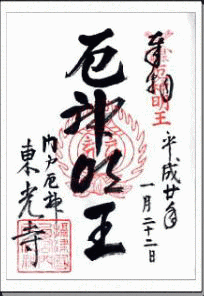 奉拝
平成廿年
一月二十二日
厄神明王
門戸厄神
東光寺